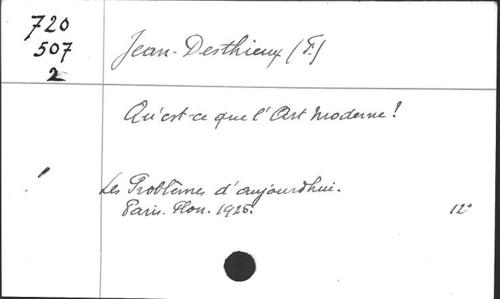 720
507
2
Jean-Desthieux (F.)
Qu'est-ce que l'Art Moderne!
Les Problèmes d'aujourd'hui.
Paris. Plon. 1925. 12°